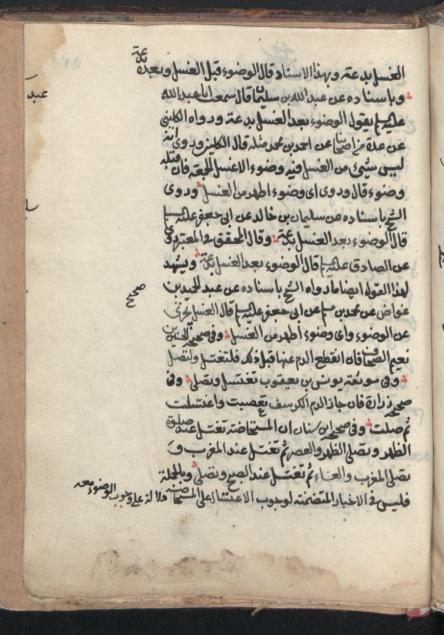 الغسل بدعة وبهذا الاسناد قال الوضوء قبل الغسل وبعده بدعة
وباسناده عن عبد الله بن سليمان قال سمعت ابا عبد الله
عليه السلام يقول الوضوء بعد الغسل بدعة ورواه الكليني
عن عدة من اصحابنا عن احمد بن محمد مثله قال الكليني وروى انه
ليس شيئ من الغسل فيه وضوء الا غسل الجمعة فان قبله
وضوء قال وروى اى وضوء اطهر من الغسل وروى
الشيخ باسناده عن سليمان بن خالد عن ابى جعفر عليه السلام
قال الوضوء بعد الغسل بدعة وقال المحقق فى المعتبر روى
عن الصادق عليه السلام قال الوضوء بعد الغسل بدعة ويشهد
لهذا القول ايضا ما رواه الشيخ باسناده عن عبد الحميد بن
عواض عن محمد بن مسلم عن ابى جعفر عليه السلام قال الغسل يجزى
صحيح
عن الوضوء واى وضوء اطهر من الغسل وفى صحيحة الحسين بن
نعيم الصحاف فان انقطع الدم عنها قبل ذلك فلتغتسل ولتصل
وفى موثقة يونس بن يعقوب تغتسل وتصلى وفى
صحيحة زرارة فان جاز الدم الكرسف تعصبت واغتسلت
ثم صلت وفى صحيحة ابن سنان ان المستحاضة تغتسل عند صلوة
الظهر وتصلى الظهر والعصر ثم تغتسل عند المغرب و
تصلى المغرب والعشاء ثم تغتسل عند الصبح وتصلى وبالجملة
فليس فى الاخبار المتضمنة لوجوب الاغتسال على المستحاضة دلالة على وجوب الوضوء معه
عبد